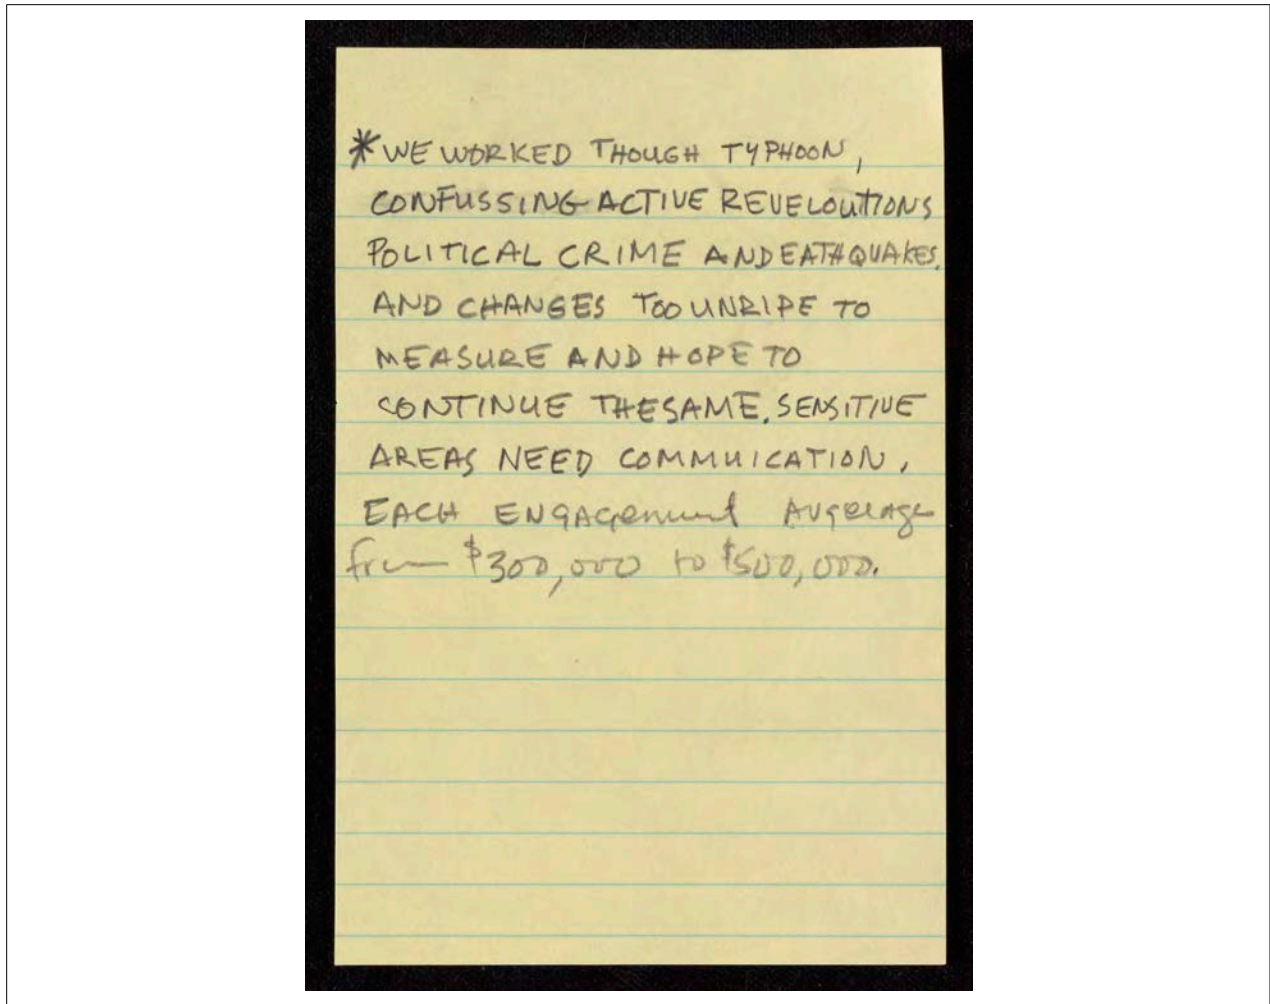 *WE WORKED THOUGH TYPHOON,
CONFUSSING ACTIVE REVELOUTIONS
POLITICAL CRIME AND EATHQUAKES.
AND CHANGES TOO UNRIPE TO
MEASURE AND HOPE TO
CONTINUE THE SAME. SENSITIVE
AREAS NEED COMMUICATION,
EACH ENGAGEMENT AVGERAGE
from $300,000 to $500,000.